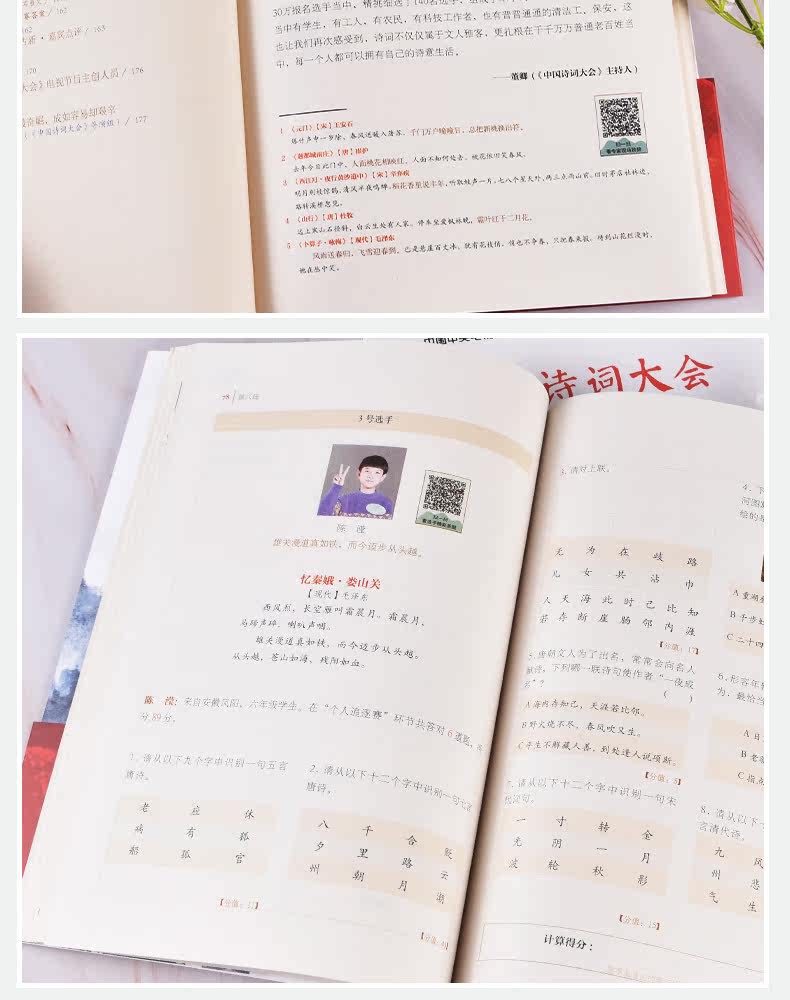 162
客答案 / 162
占新·嘉宾点评 / 163
170
大会》电视节目主创人员 / 176
最奇崛，成如容易却艰辛
（《中国诗词大会》导演组）/ 177
30万报名选手当中，精挑细选了
当中有学生，有工人，有农民，有科技工作者，也有普普通通的清洁工、保安，这
也让我们再次感受到，诗词不仅仅属于文人雅客，更扎根在千千万万普通老百姓当
中，每一个人都可以拥有自己的诗意生活。
——董卿（《中国诗词大会》主持人）
扫一扫
1 《元日》【宋】王安石
爆竹声中一岁除，春风送暖入屠苏。千门万户曈曈日，总把新桃换旧符。
2 《题都城南庄》【唐】崔护
去年今日此门中，人面桃花相映红。人面不知何处去，桃花依旧笑春风。
3 《西江月·夜行黄沙道中》【宋】辛弃疾
明月别枝惊鹊，清风半夜鸣蝉。稻花香里说丰年，听取蛙声一片。七八个星天外，两三点雨山前。旧时茅店社林边，
路转溪桥忽见。
4 《山行》【唐】杜牧
远上寒山石径斜，白云生处有人家。停车坐爱枫林晚，霜叶红于二月花。
5 《卜算子·咏梅》【现代】毛泽东
风雨送春归，飞雪迎春到。已是悬崖百丈冰，犹有花枝俏。俏也不争春，只把春来报。待到山花烂漫时，
她在丛中笑。
诗词大会
78 第六场
3 号选手
扫一扫
陈 滢
雄关漫道真如铁，而今迈步从头越。
忆秦娥·娄山关
【现代】毛泽东
西风烈，长空雁叫霜晨月。霜晨月，
马蹄声碎，喇叭声咽。
雄关漫道真如铁，而今迈步从头越。
从头越，苍山如海，残阳如血。
陈 滢：来自安徽凤阳，六年级学生。在“个人追逐赛”环节共答对 6 道题，得
分 89 分。
1. 请从以下九个字中识别一句五言
唐诗。
老 应 休
病 有 孤
船 孤 官
【分值：11】
2. 请从以下十二个字中识别一句七言
唐诗。
八 千 合 贬
夕 里 路 云
州 朝 月 潮
3. 请对上联。
无 为 在 歧 路
儿 女 共 沾 巾
人 天 海 此 时 己 比 知
若 存 断 崖 肠 邻 内 涯
【分值：17】
5. 唐朝文人为了出名，常常会向名人
献诗，下列哪一联诗句使作者“一夜成
名”？ （ ）
A 海内存知己，天涯若比邻。
B 野火烧不尽，春风吹又生。
C 平生不解藏人善，到处逢人说项斯。
【分值：8】
7. 请从以下十二个字中识别一句宋
代词句。
一 寸 转 金
光 阴 一 月
波 轮 秋 影
【分值：15】
计算得分：
4. 下
河图
绘的是
A 董湖
B 千步
C 二十四
6. 形容年
为，最恰当
A 日
B 老
C 指点
8. 请从以下
言清代诗。
九 风
州 悲
气 生